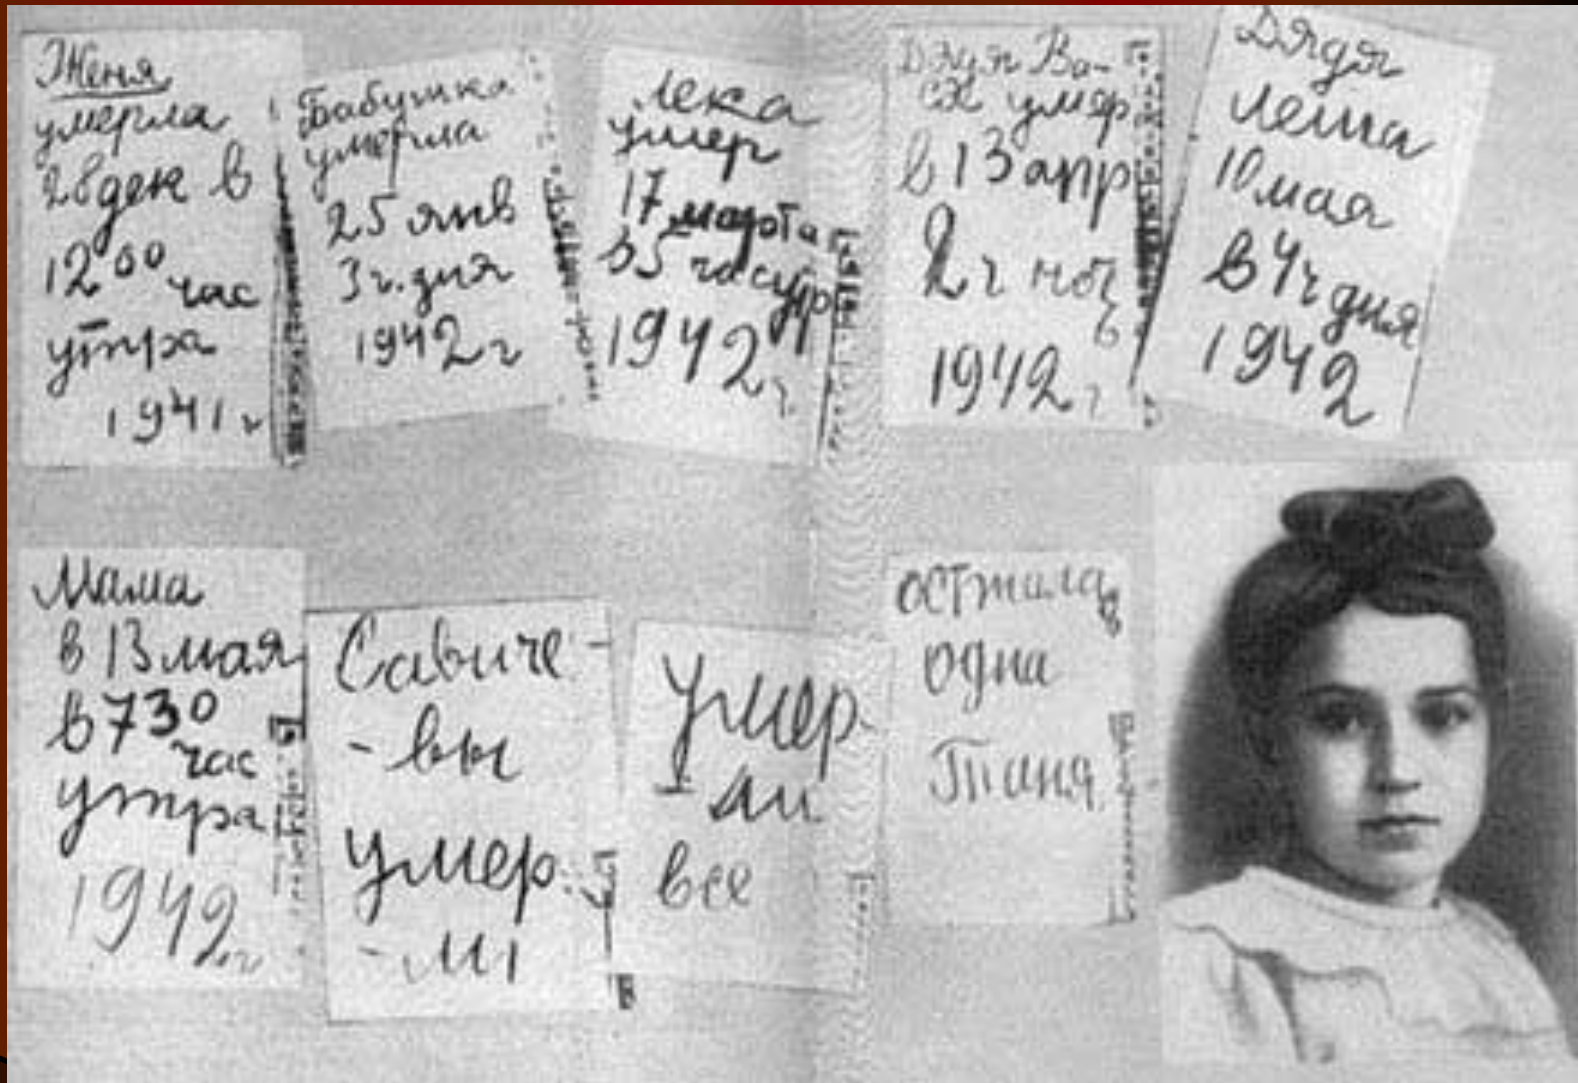 Женя
умерла
28 дек в
12 00 час
утра
1941 г
Бабушка
умерла
25 янв
3 ч. дня
1942 г
Лека
умер
17 марта
в 5 час утр
1942 г.
Дядя Ва-
ся умер
в 13 апр
2 ч ноч
ь
1942 г
Дядя
Леша
10 мая
в 4 ч дня
1942
Мама
в 13 мая
в 7 30
час
утра
1942 г
Савиче-
-вы
умер
-ли
Умер
-ли
все
осталас
одна
Таня